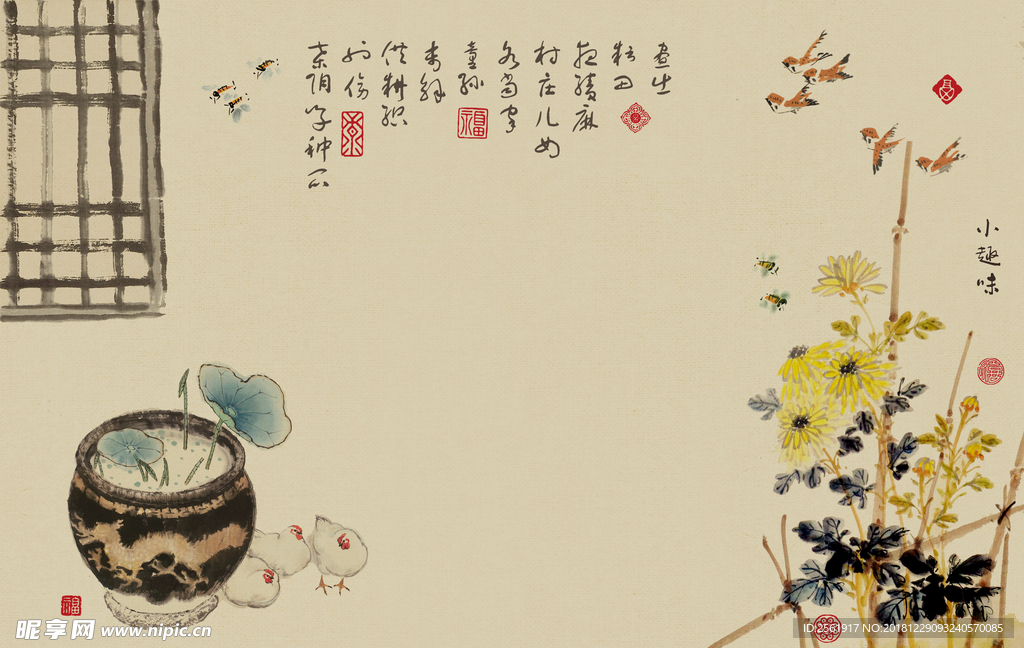 昼出
耘田
夜绩麻
村庄儿女
各当家
童孙
未解
供耕织
也傍
桑阴学种瓜
福
小趣味
福
昵享网 www.nipic.cn
ID:2561917 NO:20181229093240570085